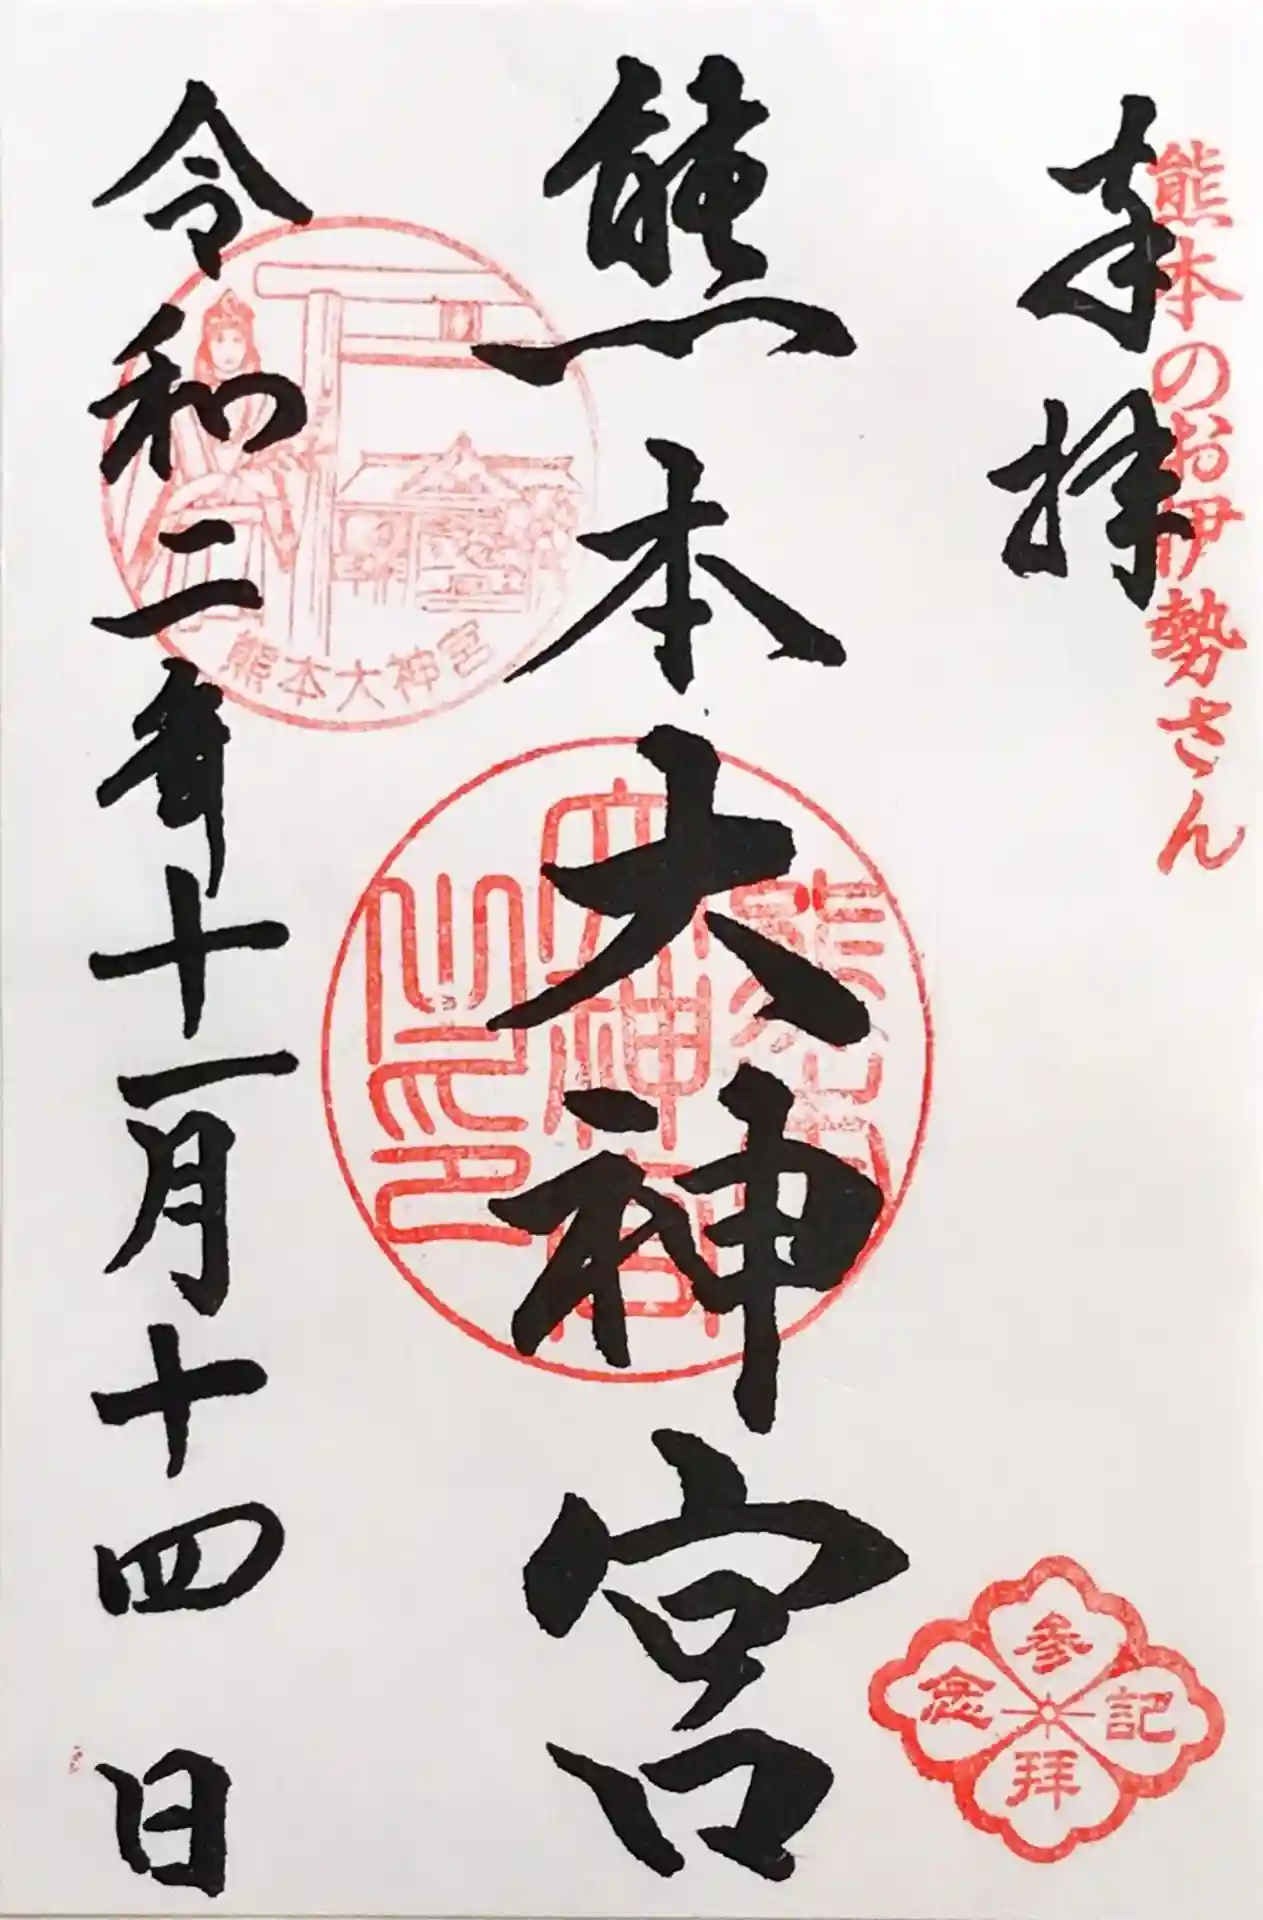 奉拝
熊本のお伊勢さん
熊本大神宮
熊本大神宮之印
令和二年十一月十四日
熊本大神宮
参拝記念